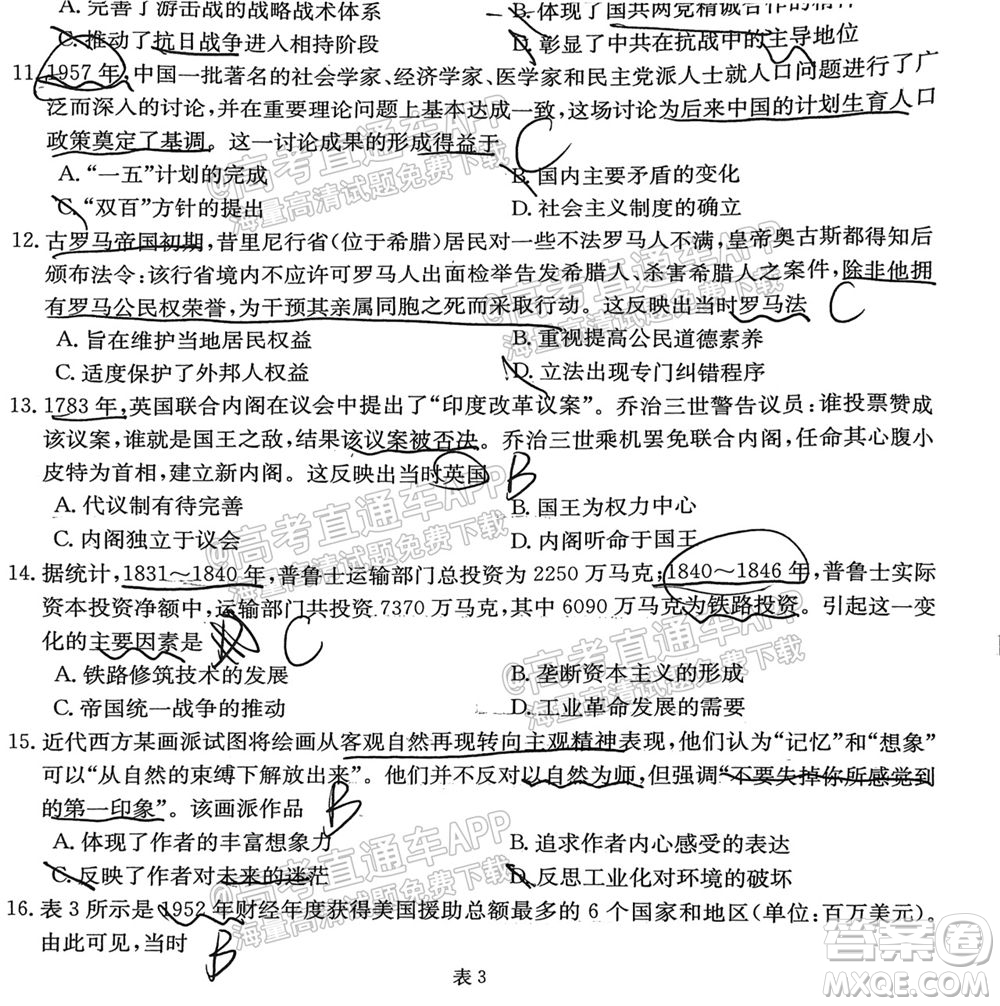 A. 完善了游击战的战略战术体系
B. 体现了国共两党精诚合作的精神
C. 推动了抗日战争进入相持阶段
D. 彰显了中共在抗战中的主导地位
11. 1957年,中国一批著名的社会学家、经济学家、医学家和民主党派人士就人口问题进行了广
泛而深入的讨论,并在重要理论问题上基本达成一致,这场讨论为后来中国的计划生育人口
政策奠定了基调。这一讨论成果的形成得益于 C
A. “一五”计划的完成
B. 国内主要矛盾的变化
C. “双百”方针的提出
D. 社会主义制度的确立
12. 古罗马帝国初期,昔里尼行省(位于希腊)居民对一些不法罗马人不满,皇帝奥古斯都得知后
颁布法令:该行省境内不应许可罗马人出面检举告发希腊人、杀害希腊人之案件,除非他拥
有罗马公民权荣誉,为干预其亲属同胞之死而采取行动。这反映出当时罗马法 C
A. 旨在维护当地居民权益
B. 重视提高公民道德素养
C. 适度保护了外邦人权益
D. 立法出现专门纠错程序
13. 1783年,英国联合内阁在议会中提出了“印度改革议案”。乔治三世警告议员:谁投票赞成
该议案,谁就是国王之敌,结果该议案被否决。乔治三世乘机罢免联合内阁,任命其心腹小
皮特为首相,建立新内阁。这反映出当时英国 B
A. 代议制有待完善
B. 国王为权力中心
C. 内阁独立于议会
D. 内阁听命于国王
14. 据统计,1831~1840年,普鲁士运输部门总投资为2250万马克;1840~1846年,普鲁士实际
资本投资净额中,运输部门共投资7370万马克,其中6090万马克为铁路投资。引起这一变
化的主要因素是 C
A. 铁路修筑技术的发展
B. 垄断资本主义的形成
C. 帝国统一战争的推动
D. 工业革命发展的需要
15. 近代西方某画派试图将绘画从客观自然再现转向主观精神表现,他们认为“记忆”和“想象”
可以“从自然的束缚下解放出来”。他们并不反对以自然为师,但强调“不要失掉你所感觉到
的第一印象”。该画派作品 B
A. 体现了作者的丰富想象力
B. 追求作者内心感受的表达
C. 反映了作者对未来的迷茫
D. 反思工业化对环境的破坏
16. 表3所示是1952年财经年度获得美国援助总额最多的6个国家和地区(单位:百万美元)。
由此可见,当时 B
表3
@高考直通车APP
海量高清试题免费下载
@高考直通车APP
海量高清试题免费下载
@高考直通车APP
海量高清试题免费下载
@高考直通车APP
海量高清试题免费下载
@高考直通车APP
海量高清试题免费下载
@高考直通车APP
海量高清试题免费下载
答案圈
MXQE.COM